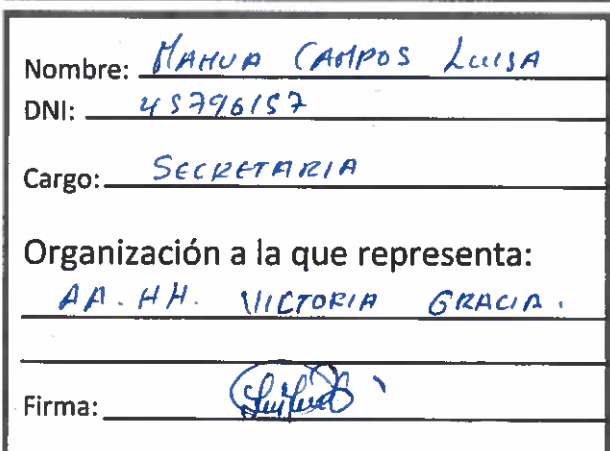 Nombre: MAHUA CAMPOS LUISA
DNI: 45796157
Cargo: SECRETARIA
Organización a la que representa:
AA. HH. VICTORIA GRACIA.
Firma: